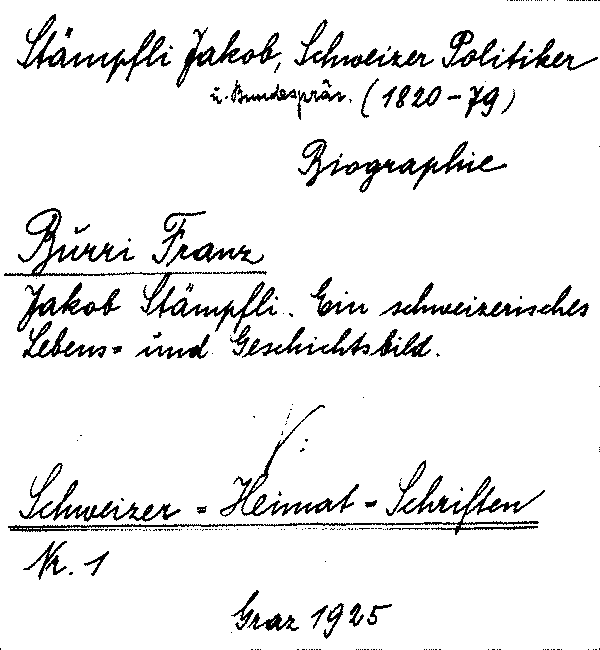 Stämpfli Jakob, Schweizer Politiker
u. Bundespräs. (1820-79)
Biographie
Burri Franz
Jakob Stämpfli. Ein schweizerisches
Lebens= und Geschichtsbild.
V:
Schweizer = Heimat = Schriften
Nr. 1
Graz 1925